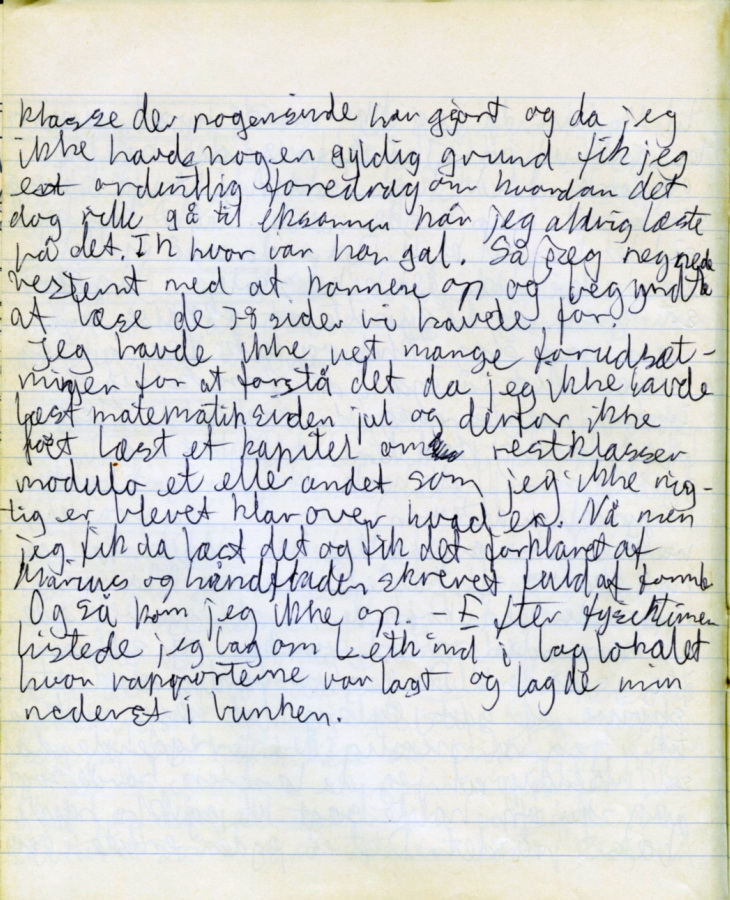 klasse der nogensinde har gjort og da jeg
ikke havde nogen gyldig grund fik jeg
et ordentlig foredrag om hvordan det
dog ville gå til eksamen når jeg aldrig læste
på det. Ih hvor var han gal. Så jeg regnede
bestemt med at komme op og begyndte
at læse de 28 sider vi havde for.
Jeg havde ikke vet mange forudsæt-
ninger for at forstå det da jeg ikke havde
læst matematik siden jul og derfor ikke
fået læst et kapitel om restklasser
modulo et eller andet som jeg ikke rig-
tig er blevet klar over hvad er. Nå men
jeg fik da læst det og fik det forklaret af
Marius og håndfladen skrevet fuld af
Og så kom jeg ikke op. - Efter fysiktimen
listede jeg bag om Leth ind i baglokalet
hvor rapporterne var lagt og lagde min
nederst i bunken.